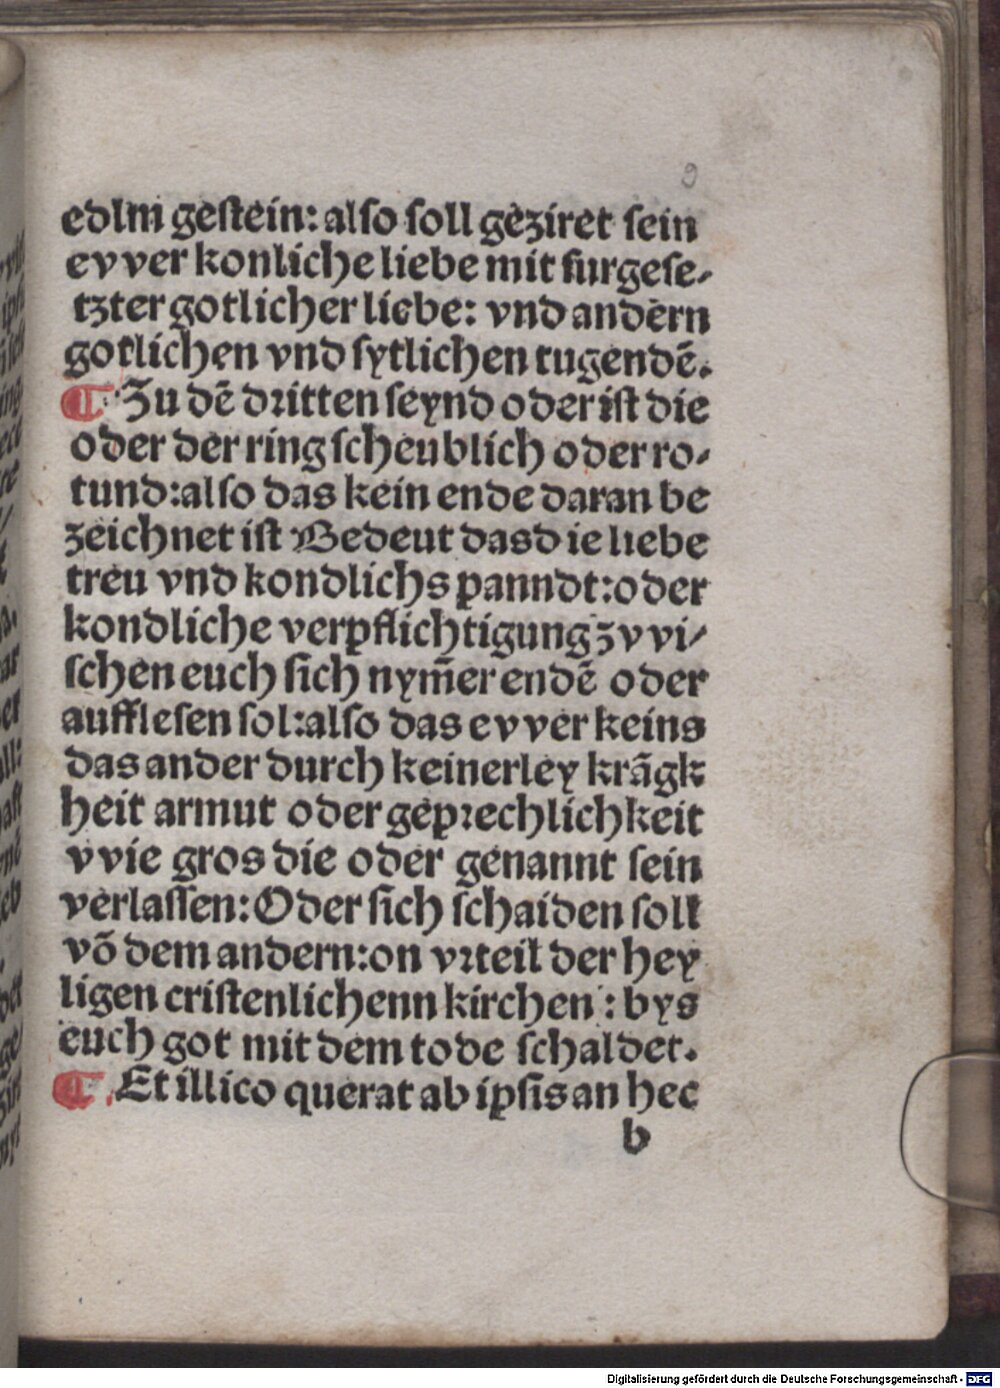 9
edlm geſtein: alſo ſoll geziret ſein
evver konliche liebe mit furgeſe⸗
tzter gotlicher liebe: vnd andern
gotlichen vnd ſytlichen tugendē.
¶ Zu dē dꝛitten ſeynd oder iſt die
oder der ring ſcheublich oder ro⸗
tund:alſo das kein ende daran be
zeichnet iſt Bedeut dasd ie liebe
treu vnd kondlichs panndt:oder
kondliche verpflichtigung zvvi⸗
ſchen euch ſich nym̄er endē oder
aufflesen ſol:alſo das evver keins
das ander durch keinerley krāgk
heit armut oder gepꝛechlichkeit
vvie gros die oder genannt ſein
verlaſſen: Oder ſich ſchaiden ſoll
vō dem andern:on vꝛteil der hey
ligen criſtenlichenn kirchen : bys
euch got mit dem tode ſchaldet.
¶ Et illico querat ab ipſis an hec
b
Digitalisierung gefördert durch die Deutsche Forschungsgemeinschaft - DFG